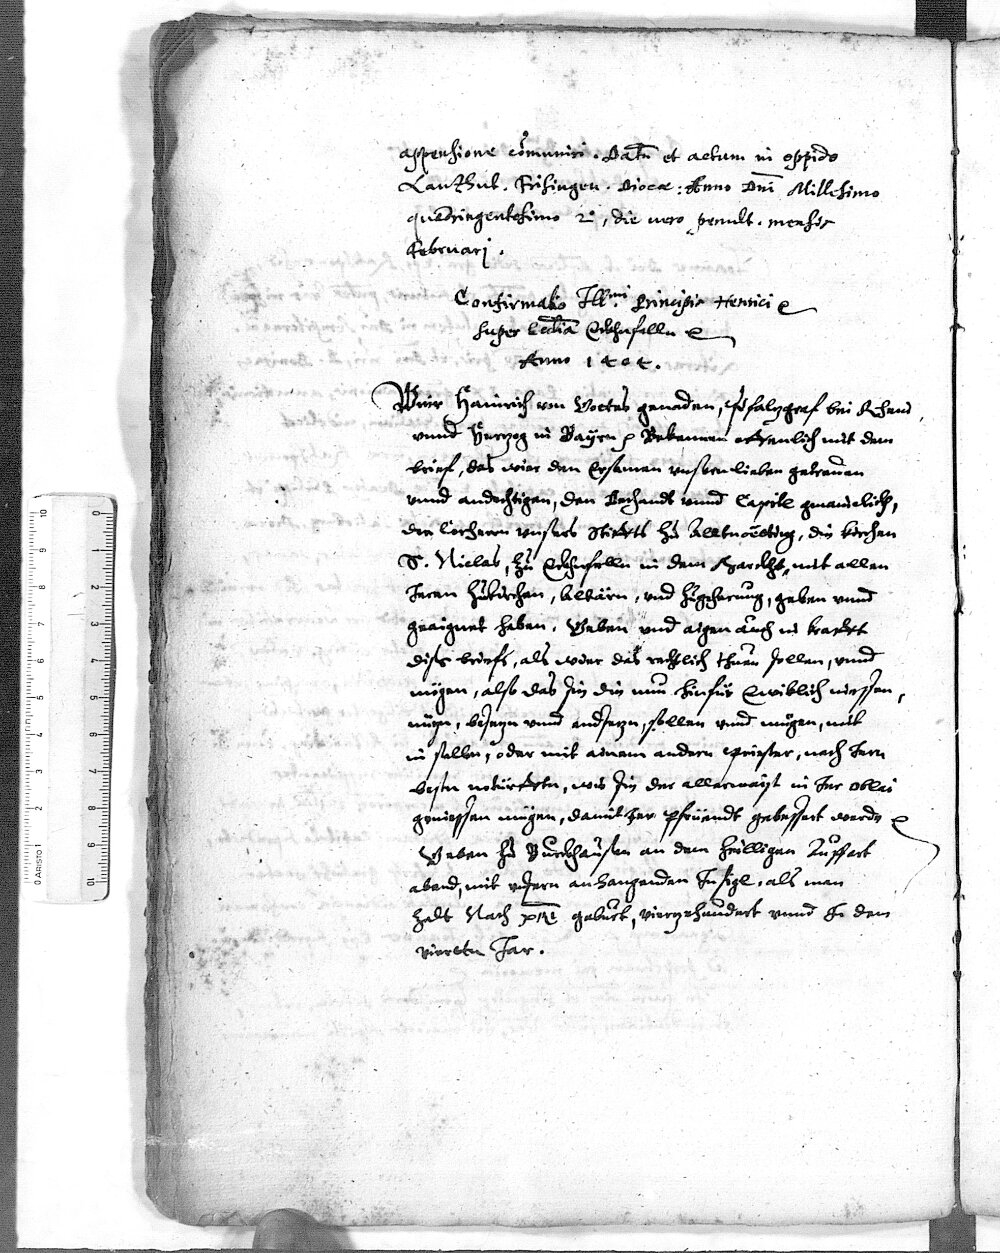 appensione communiri. Datū et actum in oppido
Lantzhut. Frisingen. Dioce: Anno Dnī Millesimo
quadringentesimo 2º, die vero penult. mensis
Februarj.
Confirmatio Illmi. Principis Henrici
super Ecclīa Eckhnfelln
Anno 1404.
Wir Hainrich von Gottes genaden, Pfalzgraf bei Rhein,
vnnd Hertzog in Bayrn Bekennen offenlich mit dem
brief, das wir den Ersamen vnsern lieben getreuen
vnnd andechtigen, den Dechandt vnnd Capitl gmainelich,
der Corherrn vnsers Stiffts zu Alltnoeting, die kirchen
S. Niclas, zu Eckhnfelln in dem Marckht, mit allen
Jeren Zukirchen, Altärn, vnd Zugeherung, geben vnnd
geaignet haben. Geben vnd aigen auch in krafft
diss briefs, als wier das rechtlich thuen sollen, vnnd
mügen, also das sy die nun hinfür Ewiklich niessen,
nüzn, besezn vnnd endsezn, sollen vnd mügen, mit
in selber, oder mit ainem andern Priester, nach Jern
besten notürfftn, wie sy der allermaist in Jer oblai
geniessen mügen, damit Jer pfrüendt gebessert werde
Geben zu Burckhausen an dem heilligen Auffart
abend, mit vnserm anhangenden Insigl, als man
zalt Nach xpī geburt, vierzehundert vnnd in dem
vierten Jar.